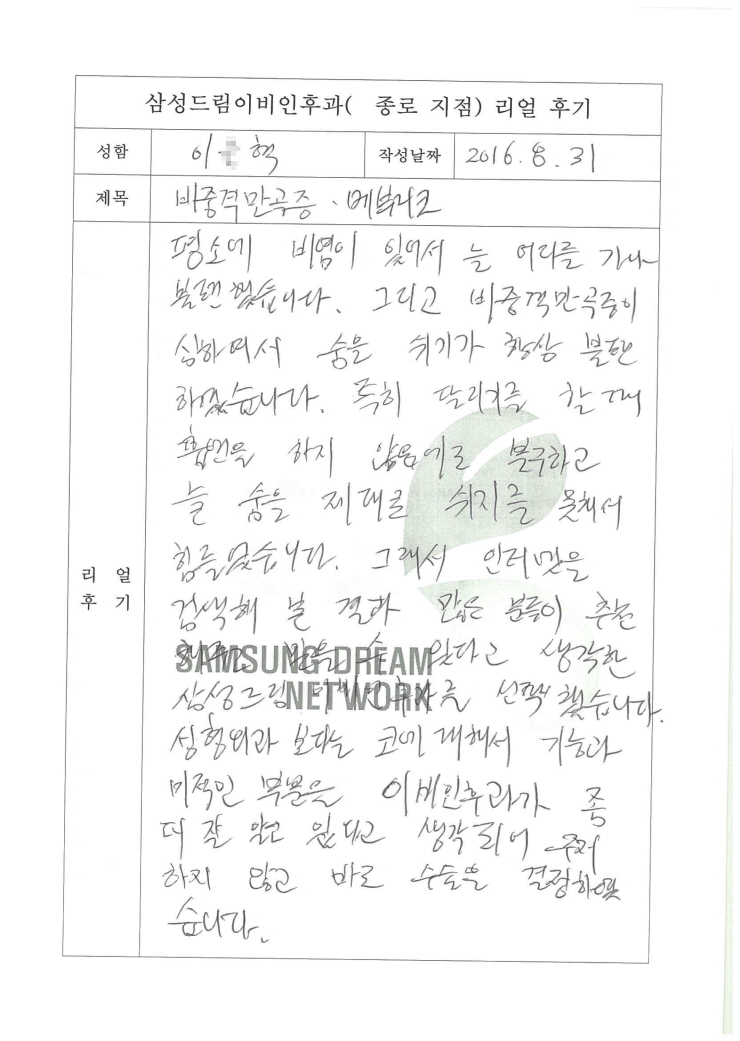 삼성드림이비인후과( 종로 지점) 리얼 후기
성함 이 혁 작성날짜 2016. 8. 31
제목 비중격만곡증.
리 얼
후 기
평소에 비염이 있어서 늘 어디를 가나
불편했습니다. 그리고 비중격만곡증이
심하여서 숨을 쉬기가 항상 불편
하였습니다. 특히 달리기를 할 때
흡연을 하지 않음에도 불구하고
늘 숨을 제대로 쉬지를 못해서
힘들었습니다. 그래서 인터넷을
검색해 본 결과 많은 분들이 추천
믿을 수 있다고 생각한
삼성드림이비인후과를 선택했습니다.
성형외과 보다는 코에 대해서 기능과
미적인 부분을 이비인후과가 좀
더 잘 알고 있다고 생각되어 주저
하지 않고 바로 수술을 결정하였
습니다.
SAMSUNG DREAM
NETWORK